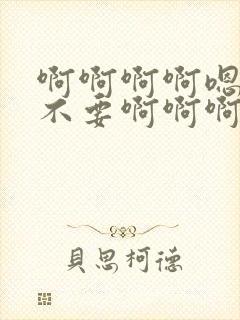 啊啊啊啊嗯
不要啊啊啊
貝思柯德